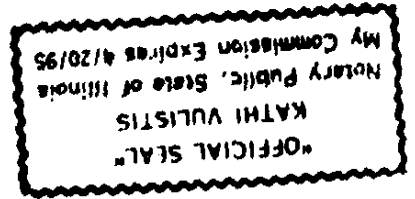 "OFFICIAL SEAL"
KATHI VULISTIS
Notary Public, State of Illinois
My Commission Expires 4/20/95